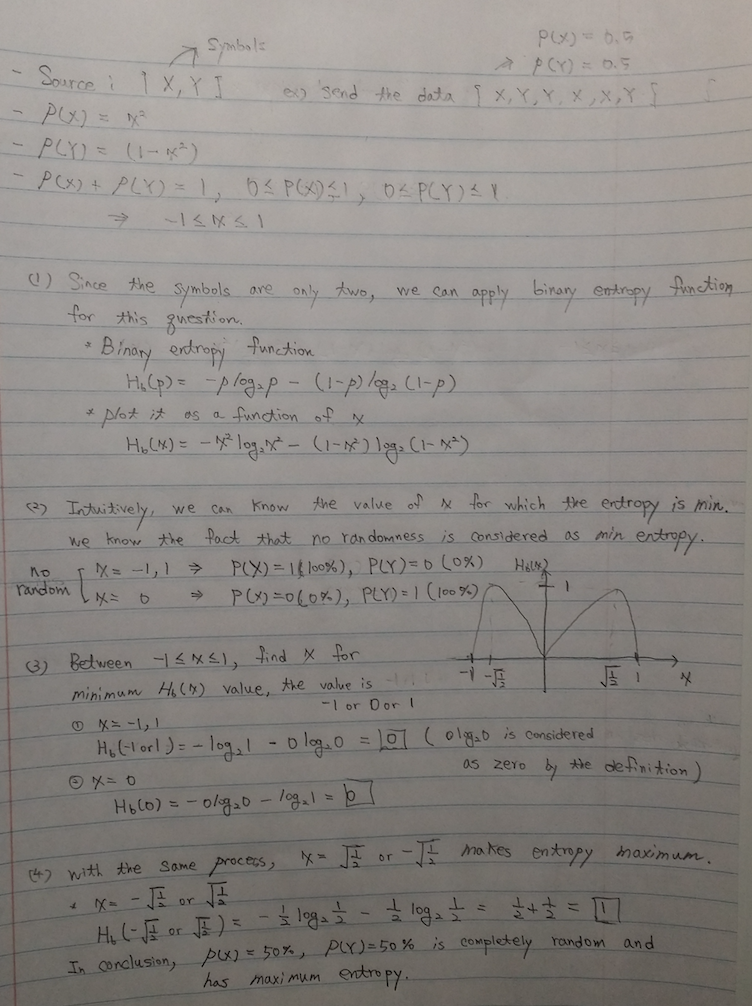 Symbols
P(X) = 0.5
⇒ P(Y) = 0.5
- Source : { X, Y }
ex) send the data { X, Y, Y, X, X, Y }
- P(X) = x²
- P(Y) = (1-x²)
- P(X) + P(Y) = 1, 0≤P(X)≤1, 0≤P(Y)≤1
⇒ -1≤x≤1
(1) Since the symbols are only two, we can apply binary entropy function
for this question.
* Binary entropy function
H_b(p) = -p log₂ p - (1-p) log₂ (1-p)
* plot it as a function of x
H_b(x) = -x² log₂ x² - (1-x²) log₂ (1-x²)
(2) Intuitively, we can know the value of x for which the entropy is min.
we know the fact that no randomness is considered as min entropy.
no random
x = -1, 1 ⇒ P(X) = 1 (100%), P(Y) = 0 (0%)
x = 0 ⇒ P(X) = 0 (0%), P(Y) = 1 (100%)
H_b(x)
1
-1 -√½ √½ 1 x
(3) Between -1≤x≤1, find x for
minimum H_b(x) value, the value is
-1 or 0 or 1
① x = -1, 1
H_b(-1 or 1) = -log₂1 - 0log₂0 = 0 ( 0log₂0 is considered
as zero by the definition)
② x = 0
H_b(0) = -0log₂0 - log₂1 = 0
(4) With the same process, x = √½ or -√½ makes entropy maximum.
* x = -√½ or √½
H_b(-√½ or √½) = -½ log₂ ½ - ½ log₂ ½ = ½ + ½ = 1
In conclusion, P(X) = 50%, P(Y) = 50% is completely random and
has maximum entropy.